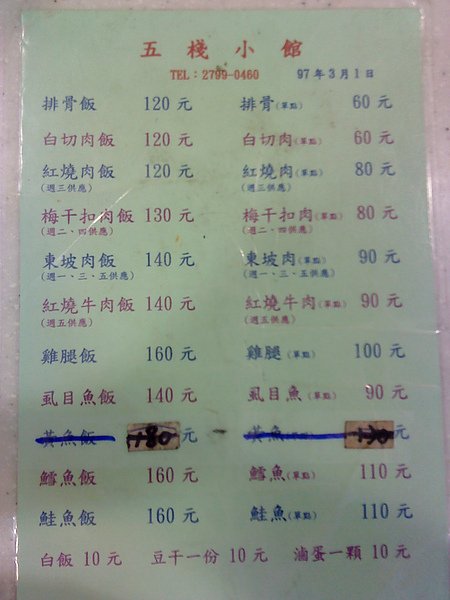 五棧小館
TEL：2799-0460 97年3月1日
排骨飯 120元 排骨(單點) 60元
白切肉飯 120元 白切肉(單點) 60元
紅燒肉飯 120元 紅燒肉(單點) 80元
(週三供應) (週三供應)
梅干扣肉飯 130元 梅干扣肉(單點) 80元
(週二、四供應) (週二、四供應)
東坡肉飯 140元 東坡肉(單點) 90元
(週一、三、五供應) (週一、三、五供應)
紅燒牛肉飯 140元 紅燒牛肉(單點) 90元
(週五供應) (週五供應)
雞腿飯 160元 雞腿(單點) 100元
虱目魚飯 140元 虱目魚(單點) 90元
黃魚飯 180元 黃魚(單點) 130元
鱈魚飯 160元 鱈魚(單點) 110元
鮭魚飯 160元 鮭魚(單點) 110元
白飯 10元 豆干一份 10元 滷蛋一顆 10元